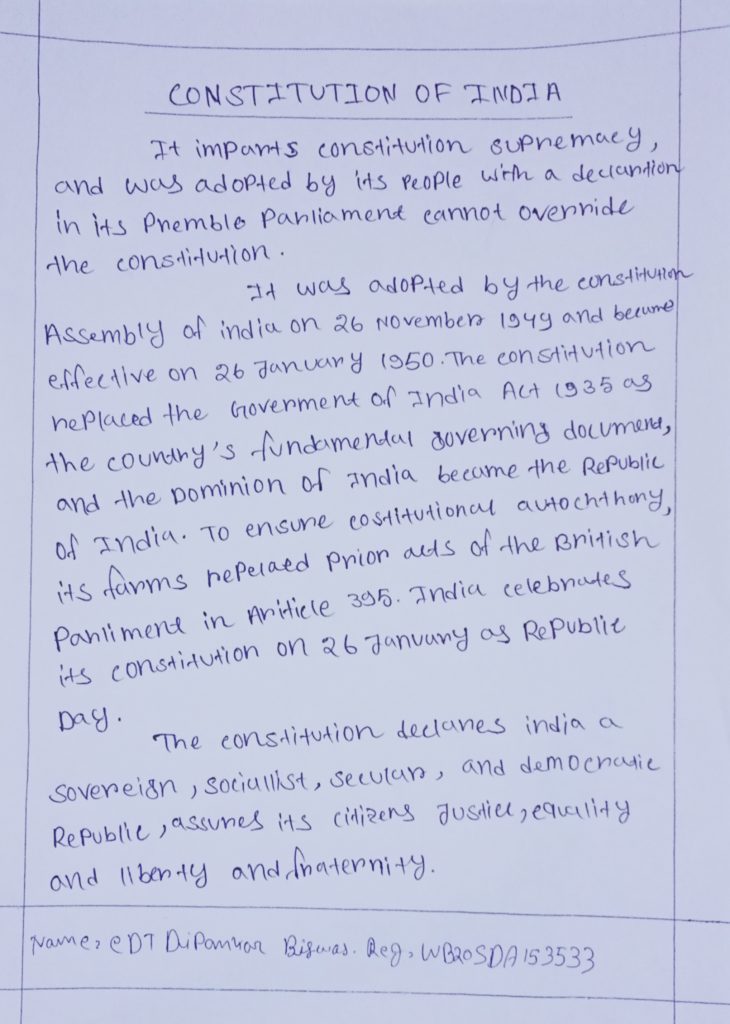 CONSTITUTION OF INDIA
It imparts constitution supremacy,
and was adopted by its people with a declartion
in its Premble Parliament cannot override
the constitution.
It was adopted by the constitution
Assembly of india on 26 November 1949 and became
effective on 26 January 1950. The constitution
replaced the Goverment of India Act 1935 as
the country's fundamental governing document,
and the Dominion of India became the Republic
of India. To ensure costitutional autochthony,
its farms repelaed prior acts of the British
Parliment in Ariticle 395. India celebrates
its constitution on 26 January as Republic
Day.
The constitution declares india a
sovereign, sociallist, secular, and democratic
Republic, assures its citizens Justice, equality
and liberty and fraternity.
Name: CDT Dipankar Biswas. Reg, WB20SDA153533